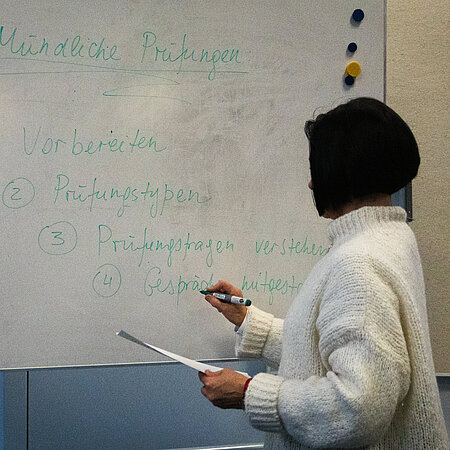 Mündliche Prüfungen
Vorbereiten
2 Prüfungstypen
3 Prüfungsfragen verstehen
4 Gespräch mitgest